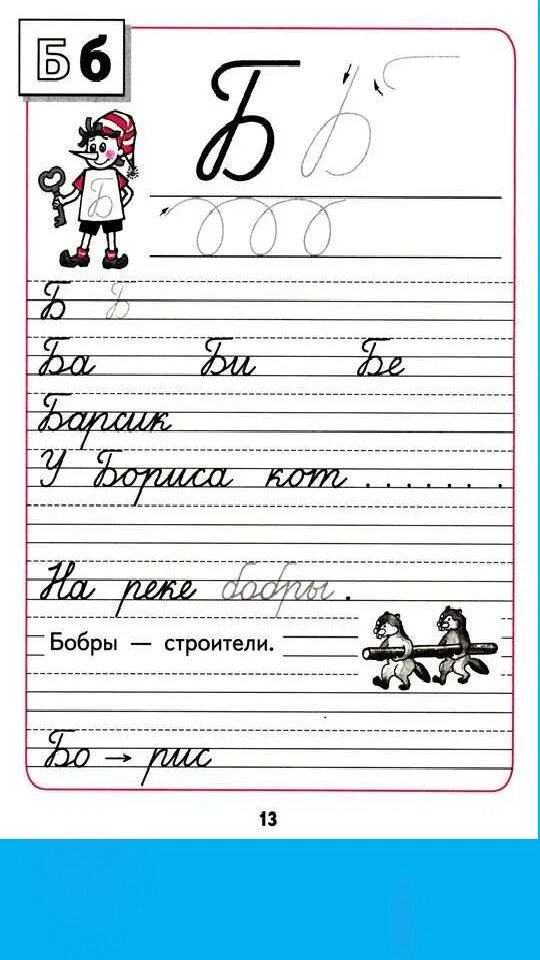 Б б
Б Б
Б
Б Б
Ба Би Бе
Барсик
У Бориса кот . . . . . . .
На реке бобры.
Бобры — строители.
Бо → рис
13